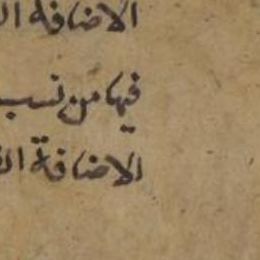 الاضافة
فيها من نسب
الاضافة